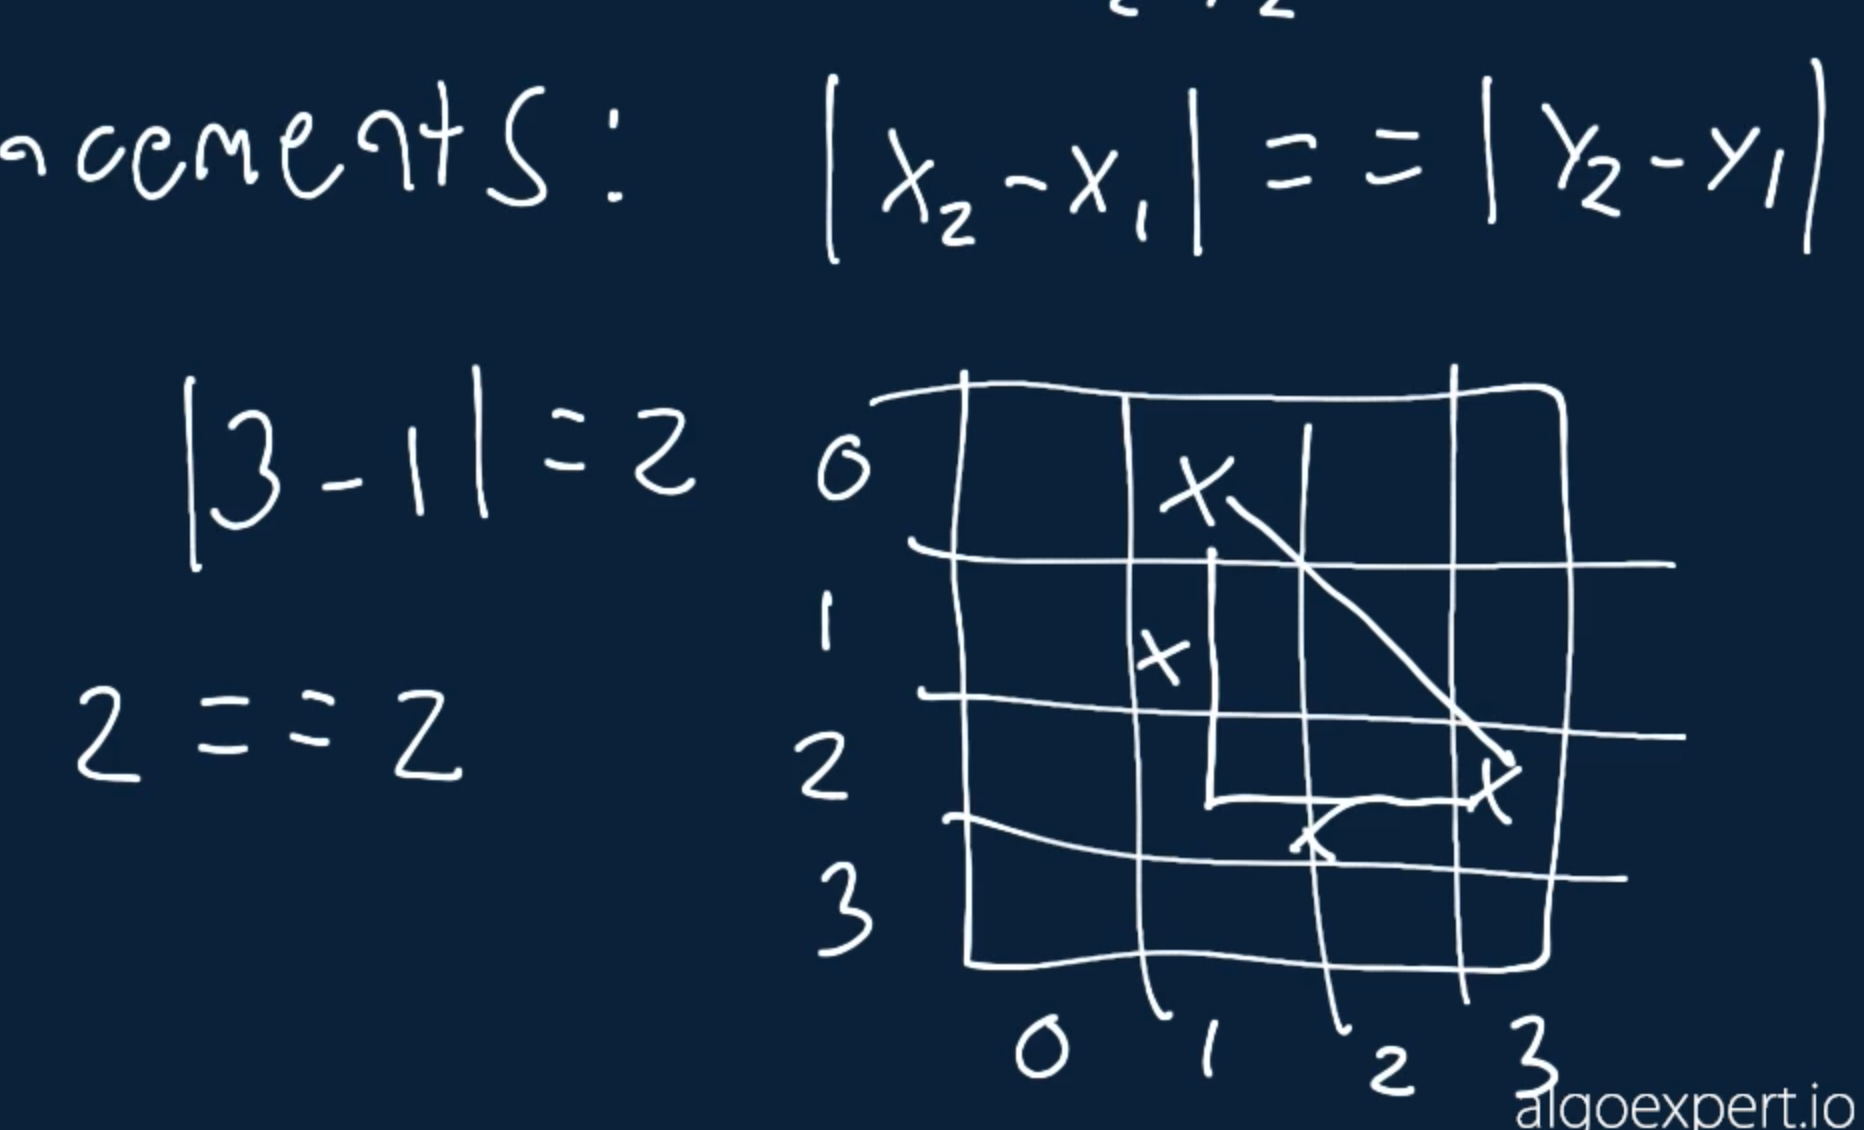 acements: |x₂-x₁| == |y₂-y₁|
|3-1| = 2
2 == 2
0 X
1 x
2 X
x
3
0 1 2 3
algoexpert.io